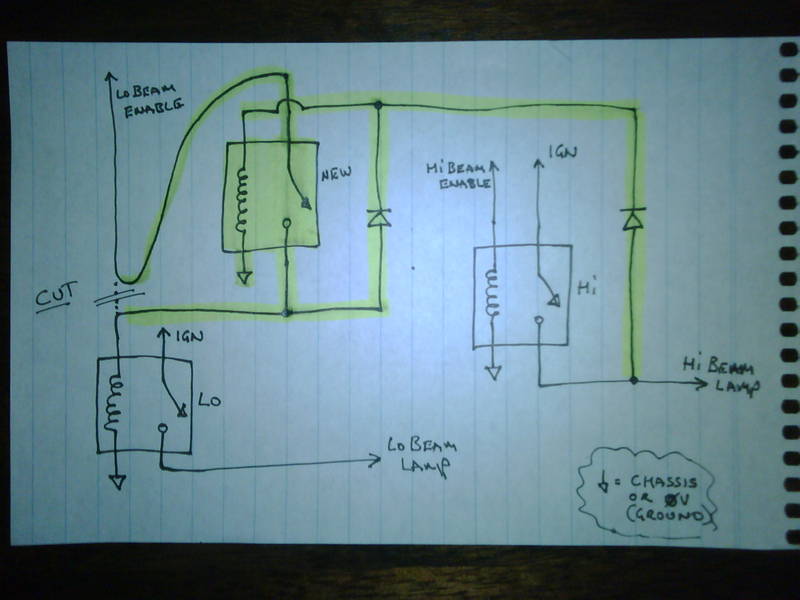 Lo BEAM
ENABLE
NEW
Hi BEAM
ENABLE
IGN
CUT
IGN
Hi
LO
Hi BEAM
LAMP
LO BEAM
LAMP
= CHASSIS
OR 0V
(GROUND)